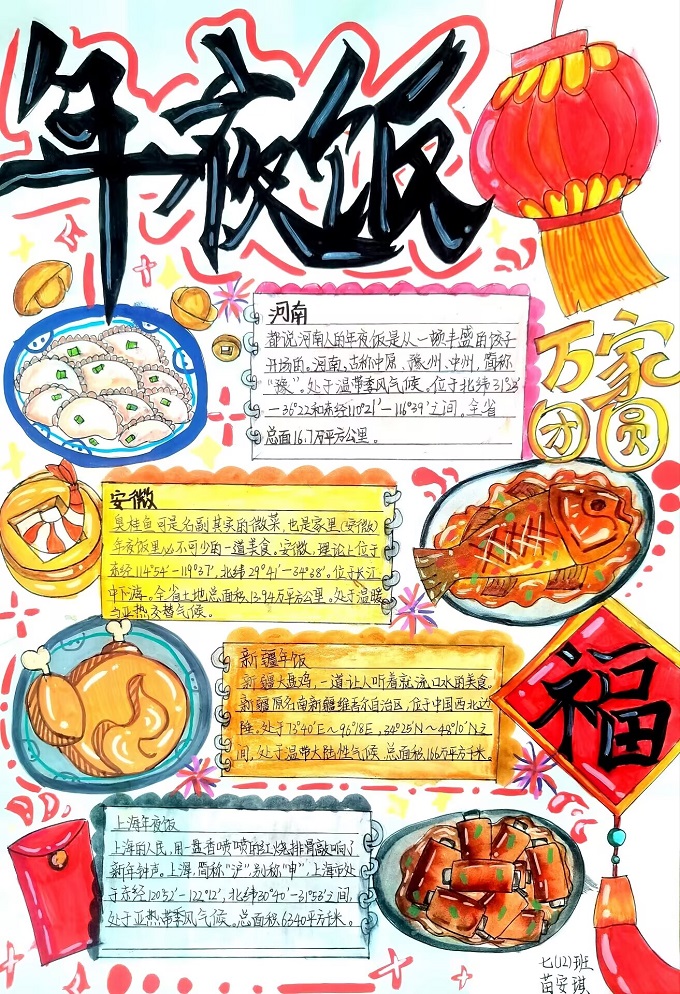 年夜饭
河南
都说河南人的年夜饭是从一顿丰盛的饺子
开场的。河南,古称中原、豫州、中州,简称
“豫”。处于温带季风气候。位于北纬31°23′
-36°22′和东经110°21′-116°39′之间。全省
总面16.7万平方公里。
万家
团圆
安徽
臭桂鱼可是名副其实的徽菜,也是家里(安徽)
年夜饭里必不可少的一道美食。安徽,理论上位于
东经114°54′-119°37′,北纬29°41′-34°38′。位于长江
中下游。全省土地总面积13.94万平方公里。处于温暖
与亚热交替气候。
新疆年饭
新疆大盘鸡,一道让人听着就流口水的美食。
新疆原名南新疆维吾尔自治区,位于中国西北边
陲,处于73°40′E~96°18′E,34°25′N~48°10′N之
间,处于温带大陆性气候。总面积166万平方千米。
福
上海年夜饭
上海的人民,用一盘香喷喷的红烧排骨敲响了
新年钟声。上海,简称“沪”,别称“申”,上海市处
于东经120°52′-122°12′,北纬30°40′-31°53′之间,
处于亚热带季风气候。总面积6340平方千米。
七(12)班
苗安琪